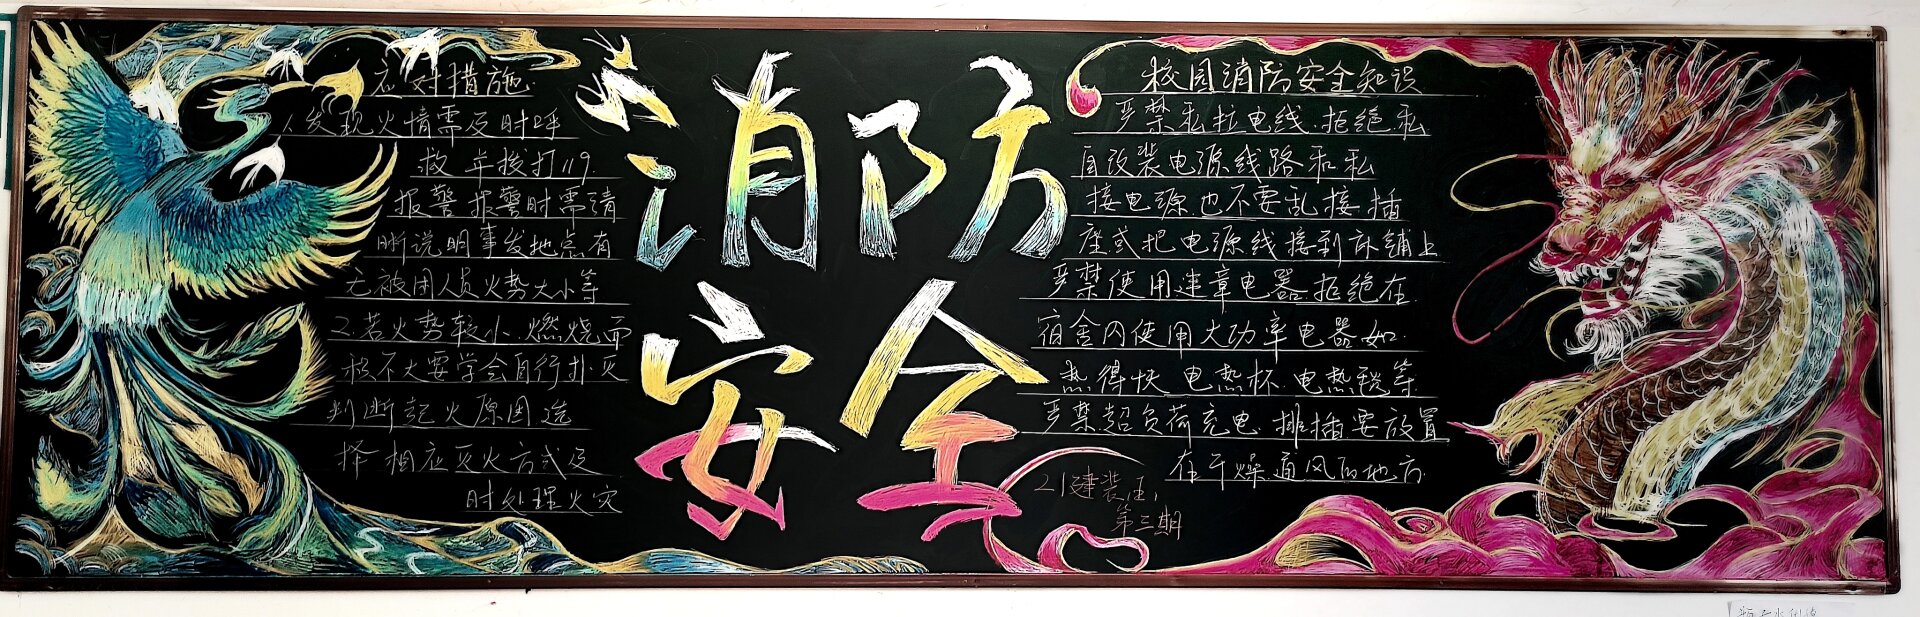 应对措施
1、发现火情需及时呼
救并拨打119.
报警.报警时需清
晰说明事发地点有
无被困人员火势大小等
2.若火势较小.燃烧面
积不大要学会自行扑灭
判断起火原因选
择相应灭火方式及
时处理火灾
消防
安全
校园消防安全知识
严禁私拉电线.拒绝私
自改装电源线路和私
接电源也不要乱接插
座或把电源线接到床铺上
严禁使用违章电器.拒绝在
宿舍内使用大功率电器如.
热得快.电热杯.电热毯等
严禁超负荷充电.排插要放置
在干燥通风的地方
21建装五1
第三期